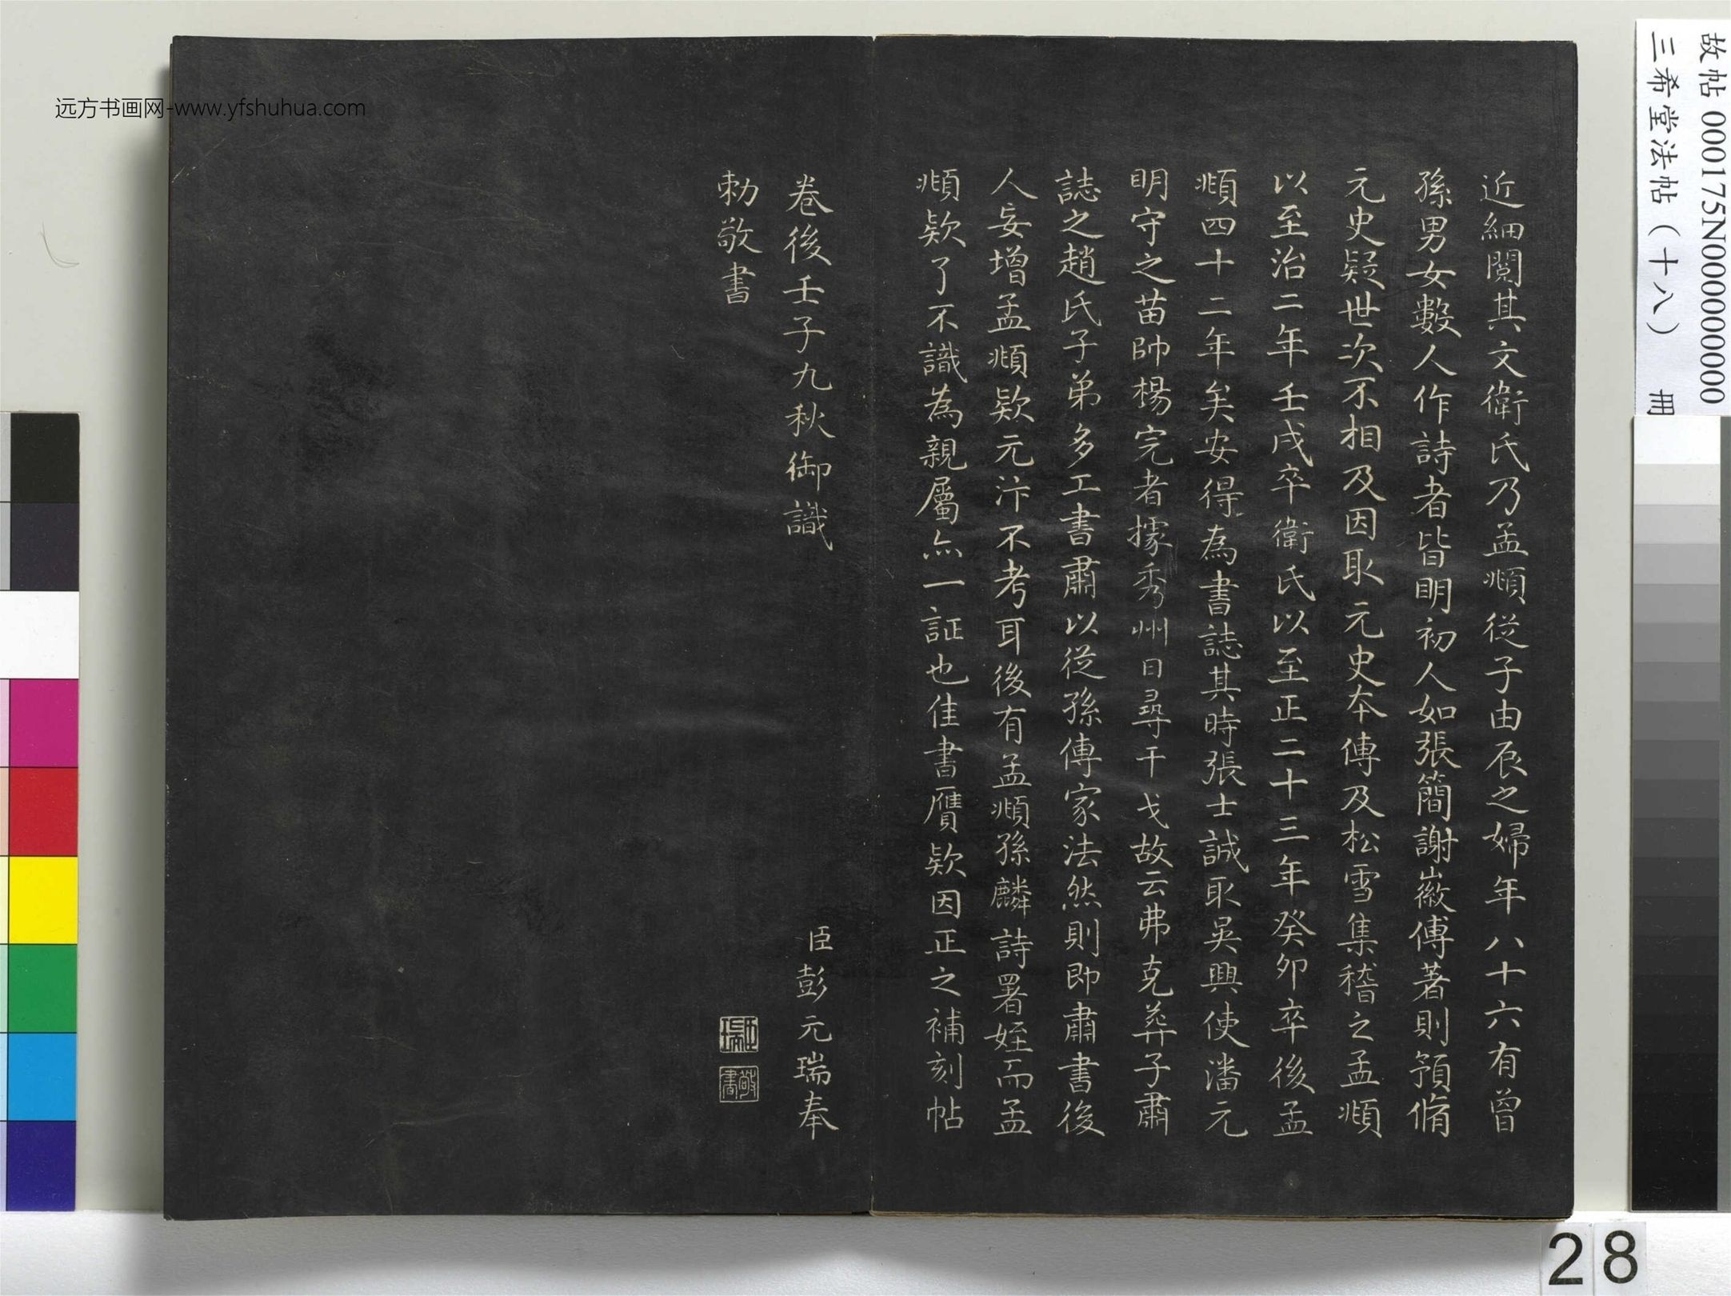 近細閱其文衛氏乃孟頫從子由辰之婦年八十六有曾
孫男女數人作詩者皆明初人如張簡謝徽傅著則預脩
元史疑世次不相及因取元史本傳及松雪集稽之孟頫
以至治二年壬戌卒衛氏以至正二十三年癸卯卒後孟
頫四十二年矣安得為書誌其時張士誠取吳興使潘元
明守之苗帥楊完者據秀州日尋干戈故云弗克葬子肅
誌之趙氏子弟多工書肅以從孫傳家法然則即肅書後
人妄增孟頫欵元汴不考耳後有孟頫孫麟詩署姪而孟
頫欵了不識為親屬亦一証也佳書贋欵因正之補刻帖
卷後壬子九秋御識
臣彭元瑞奉
勅敬書
臣元瑞
敬書
故帖 000175N000000000
三希堂法帖（十八） 冊
远方书画网-www.yfshuhua.com
28